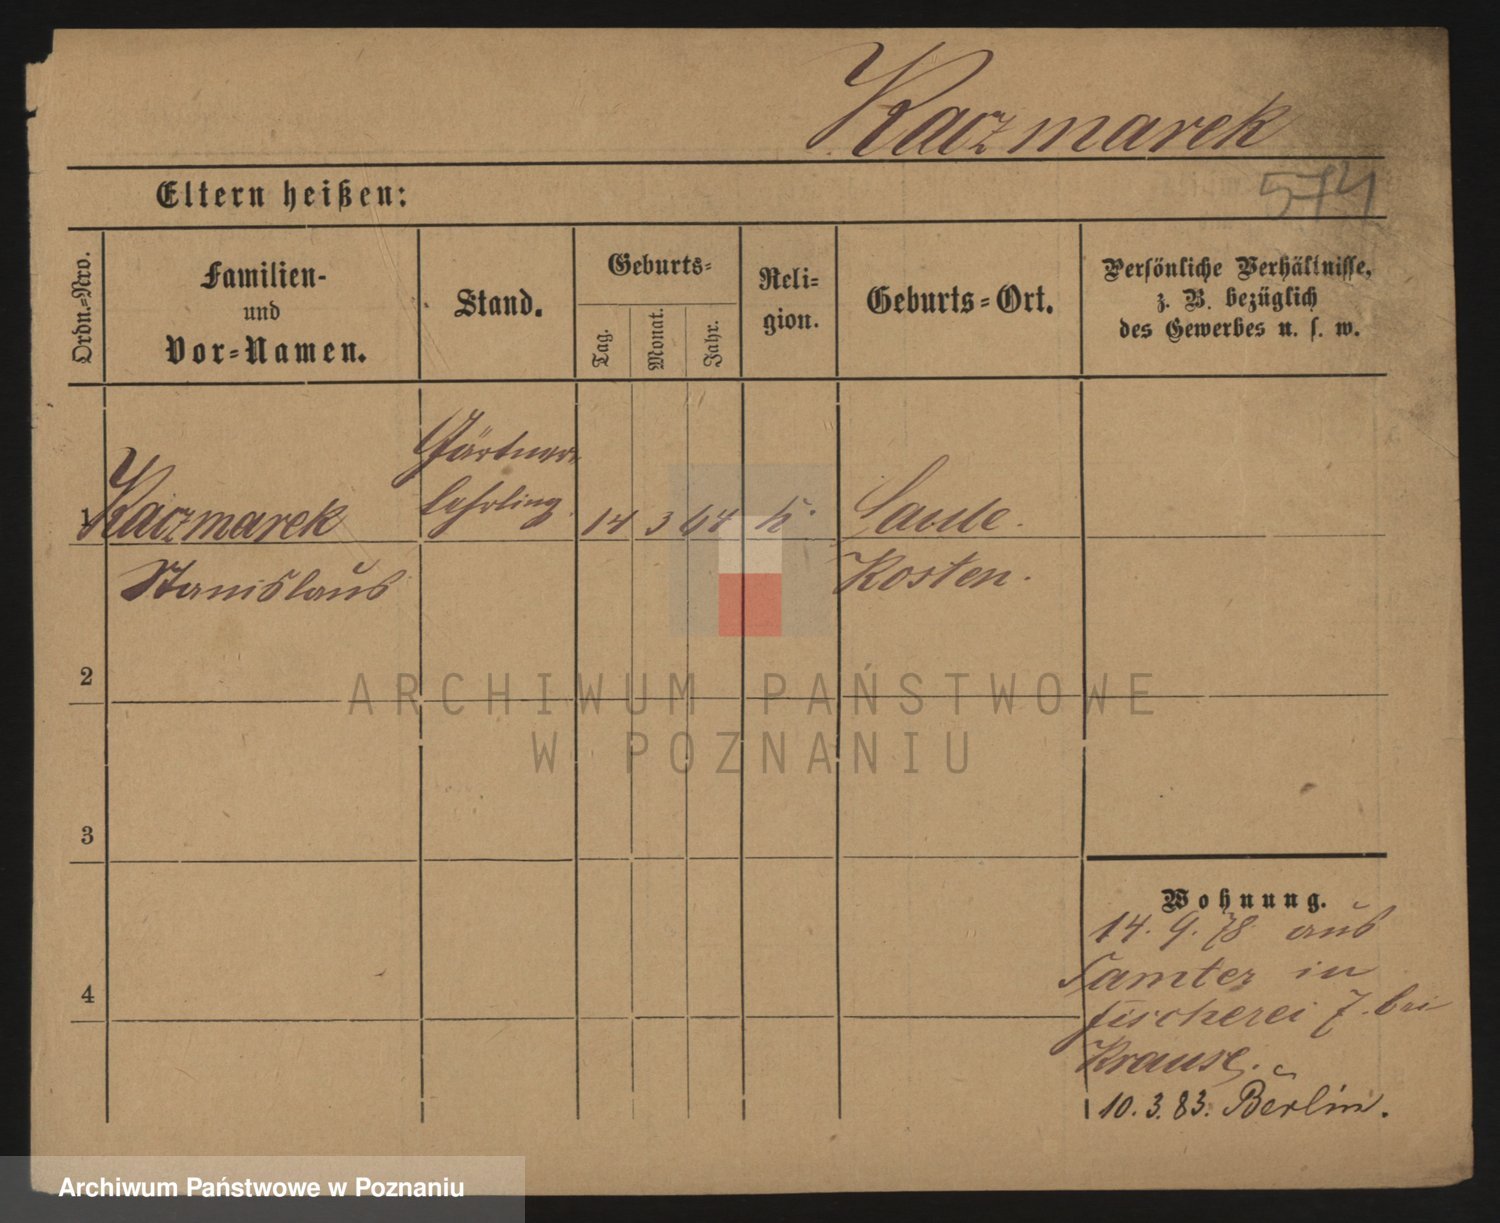 Kaczmarek
Eltern heißen:
574
Ordn.-Nro.
Familien-
und
Vor-Namen.
Stand.
Geburts-
Tag.
Monat.
Jahr.
Reli-
gion.
Geburts-Ort.
Persönliche Verhältnisse,
z. B. bezüglich
des Gewerbes u. s. w.
Gärtner-
1 Kaczmarek Lehrling. 14 3 64 k.
Stanislaus Kosten.
2
ARCHIWUM PAŃSTWOWE
W POZNANIU
3
Wohnung.
14. 9. 78 aus
Samter in
4
Fischerei 7. bei
Krause.
10. 3. 83. Berlin.
Archiwum Państwowe w Poznaniu